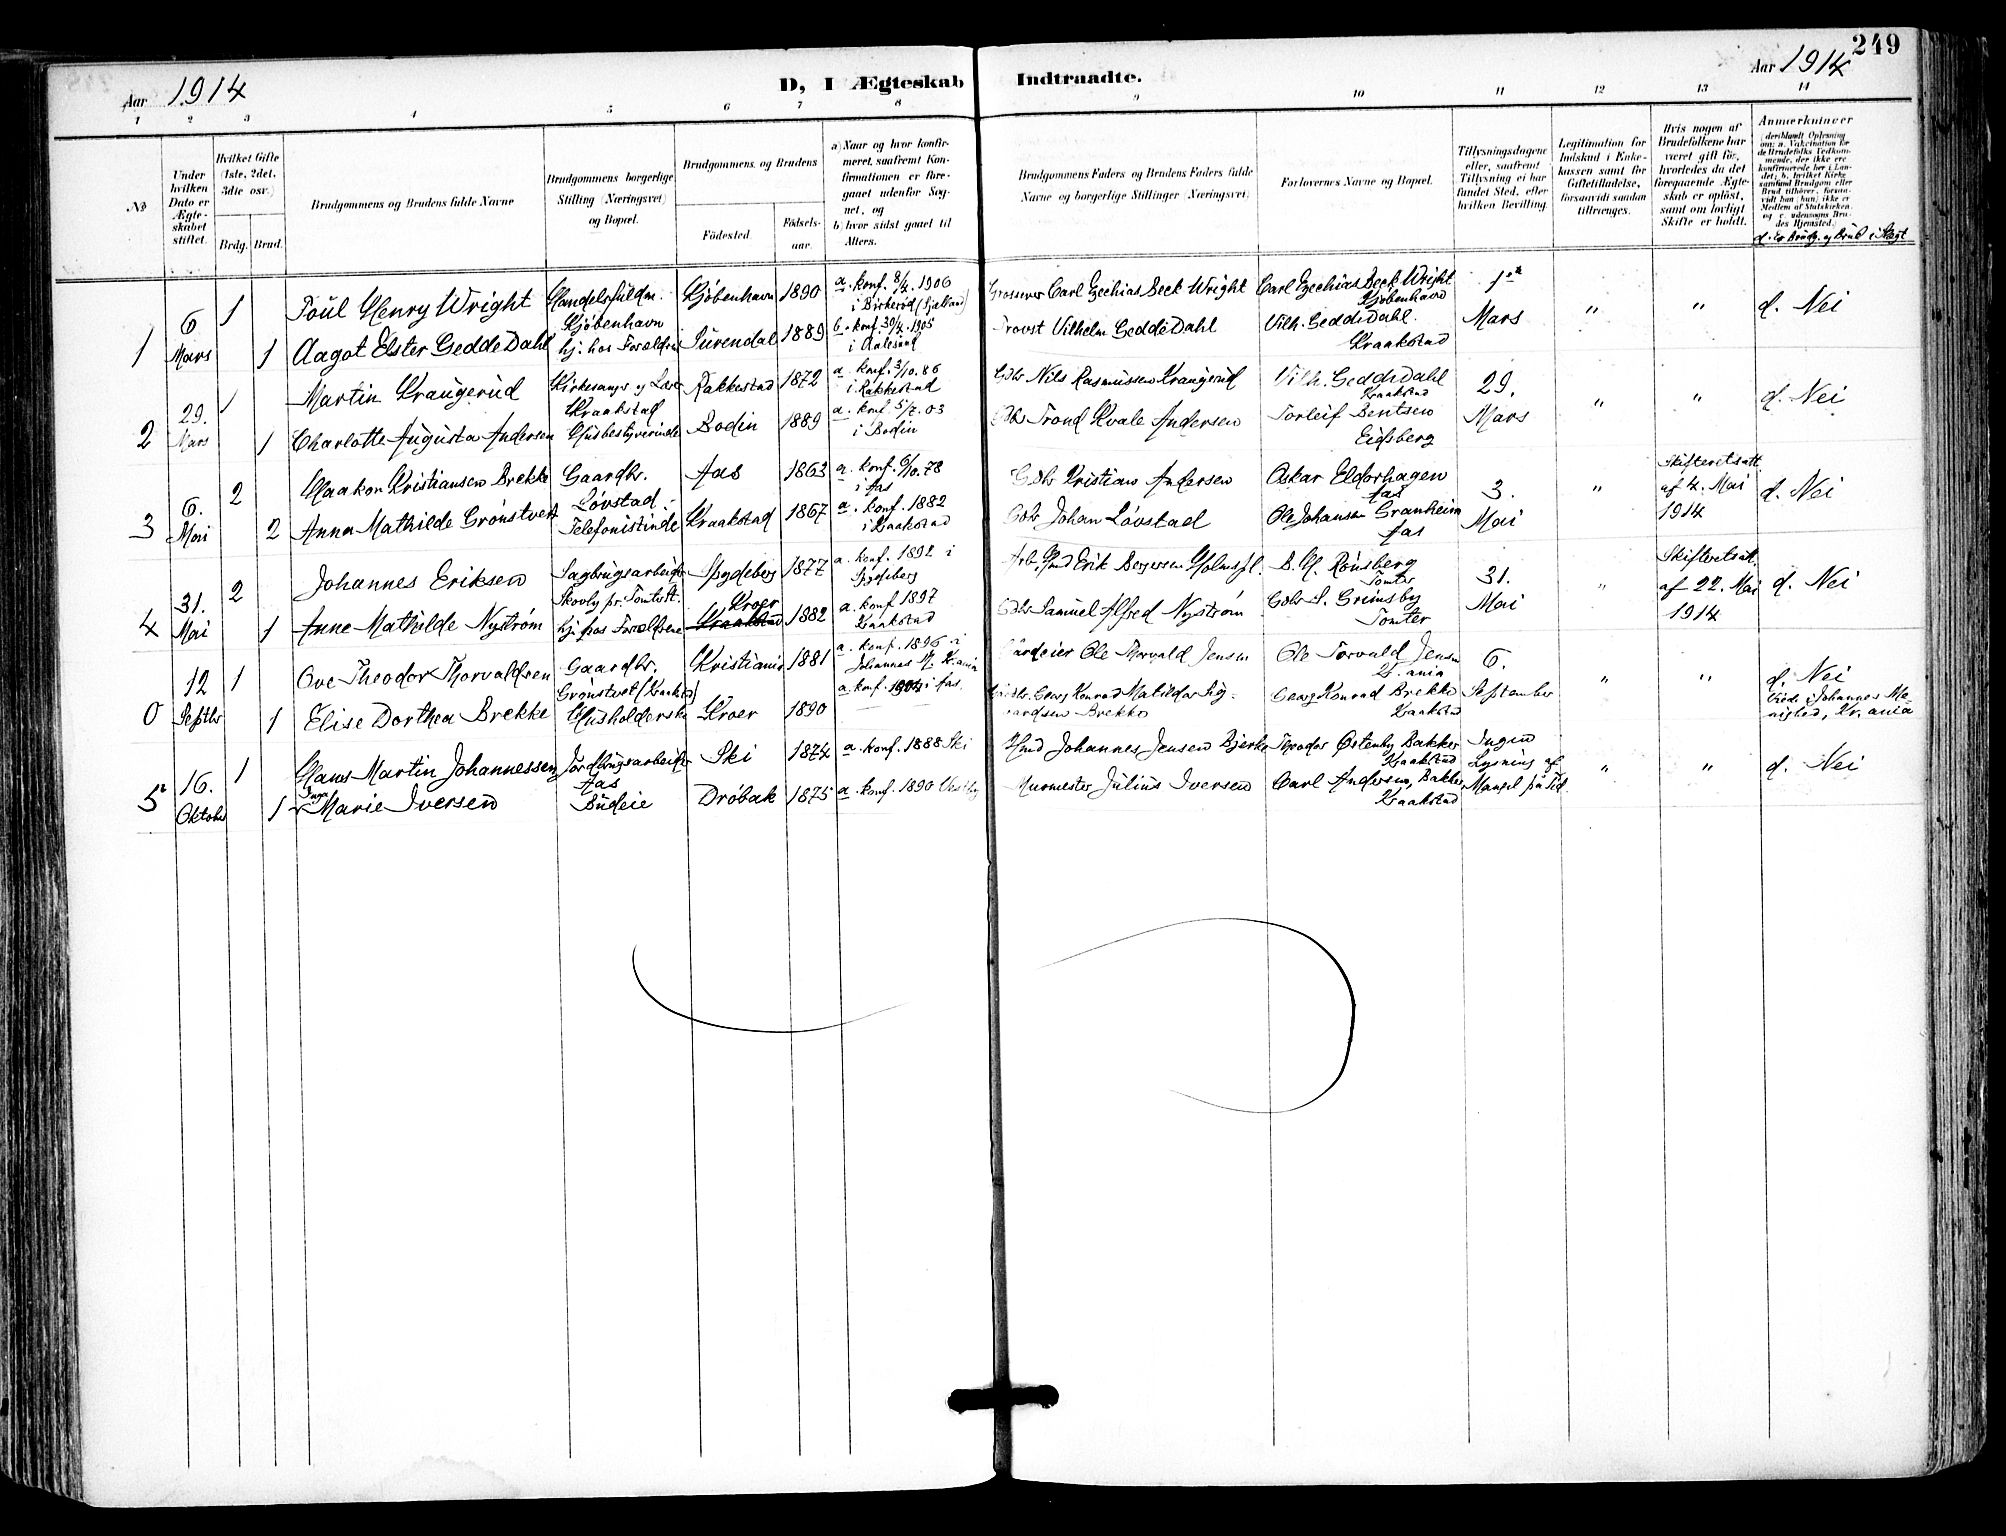 249
Aar 1914
D, I Ægteskab Indtraadte.
Aar 1914
1 2 3 4 5 6 7 8 9 10 11 12 13 14
No
Under hvilken Dato er Ægteskabet stiftet.
Hvilket Gifte (1ste, 2det, 3die osv.)
Brdg. Brud.
Brudgommens og Brudens fulde Navne
Brudgommens borgerlige Stilling (Næringsvei) og Bopæl.
Brudgommens og Brudens
Fødested.
Fødselsaar.
a) Naar og hvor konfirmeret, saafremt Konfirmationen er foregaaet udenfor Sognet, og
b) hvor sidst gaaet til Alters.
Brudgommens Faders og Brudens Faders fulde Navne og borgerlige Stillinger (Næringsvei)
Forlovernes Navne og Bopæl.
Tillysningsdagene eller, saafremt Tillysning ei har fundet Sted, efter hvilken Bevilling.
Legitimation for Indskud i Enkekassen samt for Giftetilladelse, forsaavidt saadan tiltrænges.
Hvis nogen af Brudefolkene har været gift før, hvorledes da det foregaaende Ægteskab er opløst, samt om lovligt Skifte er holdt.
Anmerkninger
d. Er Brudg. og Brud i Slægt
1
6 Mars
1
Poul Henry Wright
Handelsfuldm. Kjöbenhavn
Kjöbenhavn
1890
a. konf. 8/4. 1906 i Birkeröd (Sjælland)
Grosserer Carl Ezechias Beck Wright
Carl Ezechias Beck Wright Kjöbenhavn
1ste Mars
" "
d. Nei
1
Aagot Elster Gedde Dahl
hj. hos Forældrene
Surendal
1889
b. konf. 30/4. 1905 i Aalesund
Provst Vilhelm Gedde Dahl
Vilh. Gedde Dahl. Kraakstad
2
29. Mars
1
Martin Kraugerud
Kirkesanger og Lærer Kraakstad
Rakkestad
1872
a. konf. 3/10. 86 i Rakkestad
Gbr Nils Rasmussen Kraugerud
Vilh. Gedde Dahl Kraakstad
29. Mars
" "
d. Nei
1
Charlotte Augusta Andersen
Husbestyrerinde
Bodin
1889
a. konf. 5/7. 03 i Bodin
Gbr Trond Kvale Andersen
Torleif Bentsen Eidsberg
3
6. Mai
2
Haakon Kristiansen Brekke
Gaardbr. Lövstad
Aas
1863
a. konf. 6/10. 78 i Aas
Gbr Kristian Andersen
Oskar Eldorhagen Aas
3. Mai
"
Skifteretsatt. af 4. Mai 1914
d. Nei
2
Anna Mathilde Grönstvedt
Telefonistinde
Kraakstad
1867
a. konf. 1882 i Kraakstad
Gbr Johan Lövstad
Ole Johansen Granheim Aas
4
31. Mai
2
Johannes Eriksen
Sagbrugsarbeider Skovly pr. Tomter St.
Spydeberg
1877
a. konf. 1892 i Spydeberg
Arb. Hmd Erik Bergersen
B. H. Rönsberg Tomter
31. Mai
"
Skifteretsatt. af 22. Mai 1914
d. Nei
1
Anne Mathilde Nyström
hj. hos Forældrene
Kroer Kraakstad
1882
a. konf 1897 Kraakstad
Gbr Samuel Alfred Nyström
Gbr S. Grimsby Tomter
0
12 Septbr
1
Ove Theodor Thorvaldsen
Gaardbr. Grönstvet (Kraakst)
Kristiania
1881
a. konf. 1896 i Johannes M. Kr.ania
Gårdeier Ole Thorvald Jensen
Ole Torvald Jensen Kr. ania
6. September
" "
d. Nei
Viede i Johannes Menighed, Kr. ania
1
Elise Dorthea Brekke
Husholderske
Kroer
1890
a. konf. 1904 i Aas.
Georg Konrad Mathildar Sigvardsen Brekke
Georg Konrad Brekke Kraakstad
5
16. Oktober
1
Hans Martin Johannessen
Jordbrugsarbeider Aas
Ski
1874
a. konf. 1888 Ski
Hmd Johannes Jensen Bjerke
Theodor Østenby Bakker Kraakstad
Ingen Lysning af Mangel på Tid
" "
d. Nei
1
Inga Marie Iversen
Budeie
Dröbak
1875
a. konf. 1890 Vestby
Murmester Julius Iversen
Carl Andersen, Bakker Kraakstad